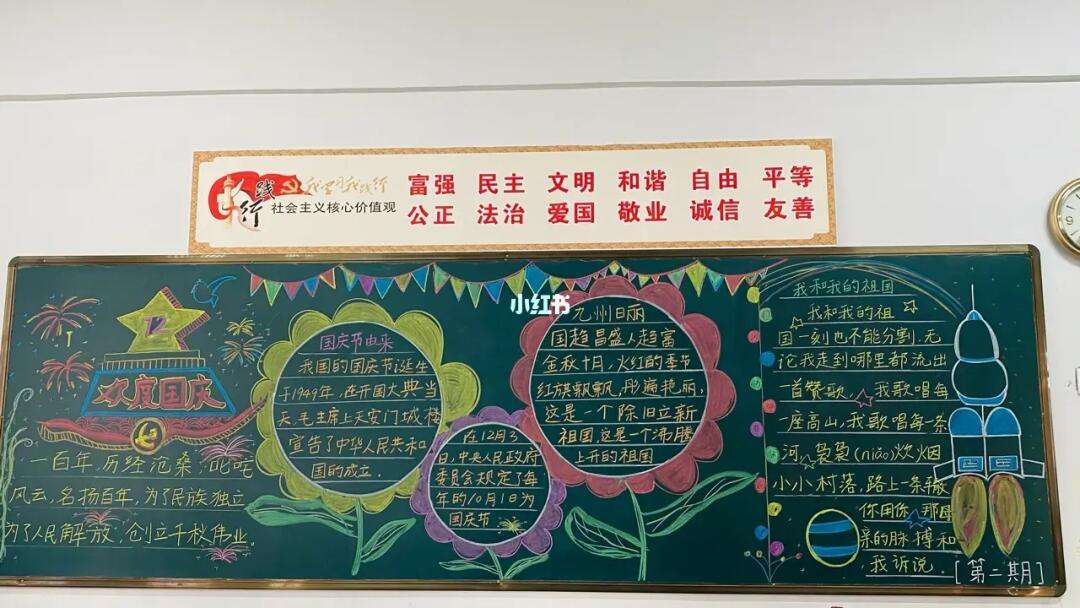 践行
社会主义核心价值观
富强 民主 文明 和谐 自由 平等
公正 法治 爱国 敬业 诚信 友善
小红书
欢度国庆
一百年,历经沧桑,叱咤
风云,名扬百年,为了民族独立
为了人民解放,创立千秋伟业。
国庆节由来
我国的国庆节诞生
于1949年,在开国大典当
天,毛主席上天安门城楼
宣告了中华人民共和
国的成立.
在12月3
日,中央人民政府
委员会规定了每
年的10月1日为
国庆节
九州日丽
国超昌盛人超富
金秋十月,火红的季节
红旗飘飘,彤遍艳丽,
这是一个除旧立新
祖国,这是一个沸腾
上升的祖国
我和我的祖国
我和我的祖
国一刻也不能分割.无
论我走到哪里都流出
一首赞歌,我歌唱每
一座高山,我歌唱每一条
河.袅袅(niǎo)炊烟
小小村落,路上一条辙
你用你那母
亲的脉搏和
我诉说.
[第二期]